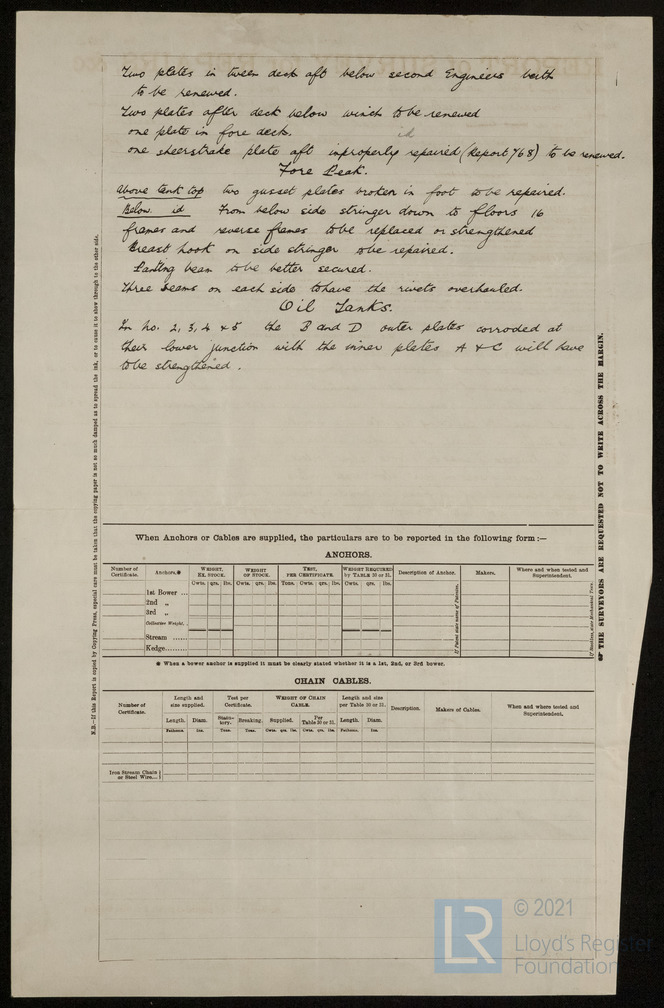 Two plates in tween deck aft below second Engineers berth
to be renewed.
Two plates after deck below winch to be renewed
one plate in fore deck. id
one sheerstrake plate aft improperly repaired (Report 768) to be renewed.
Fore Peak.
Above tank top two gusset plates broken in foot to be repaired.
Below id From below side stringer down to floors 16
frames and reverse frames to be replaced or strengthened
Breast hook on side stringer to be repaired.
Panting beam to be better secured.
Three seams on each side to have the rivets overhauled.
Oil Tanks.
In No. 2, 3, 4 & 5 the B and D outer plates corroded at
their lower junction with the inner plates A & C will have
to be strengthened.
N.B.—If this Report is copied by Copying Press, especial care must be taken that the copying paper is not so much damped as to spread the ink, or to cause it to show through to the other side.
THE SURVEYORS ARE REQUESTED NOT TO WRITE ACROSS THE MARGIN.
When Anchors or Cables are supplied, the particulars are to be reported in the following form :—
ANCHORS.
Number of Certificate. Anchors.* WEIGHT, EX. STOCK. WEIGHT OF STOCK. TEST, PER CERTIFICATE. WEIGHT REQUIRED by TABLE 30 or 31. Description of Anchor. Makers. Where and when tested and Superintendent.
Cwts. qrs. lbs. Cwts. qrs. lbs. Tons. Cwts. qrs. lbs. Cwts. qrs. lbs.
1st Bower ...
2nd „
3rd „
Collective Weight.
Stream ......
Kedge.......
If Patent state name of Patentee.
* When a bower anchor is supplied it must be clearly stated whether it is a 1st, 2nd, or 3rd bower.
CHAIN CABLES.
Number of Certificate. Length and size supplied. Test per Certificate. WEIGHT OF CHAIN CABLE. Length and size per Table 30 or 31. Description. Makers of Cables. When and where tested and Superintendent.
Length. Diam. Statutory. Breaking. Supplied. Per Table 30 or 31. Length. Diam.
Fathoms. Ins. Tons. Tons. Cwts. qrs. lbs. Cwts. qrs. lbs. Fathoms. Ins.
Iron Stream Chain
or Steel Wire...
LR
© 2021
Lloyd's Register
Foundation